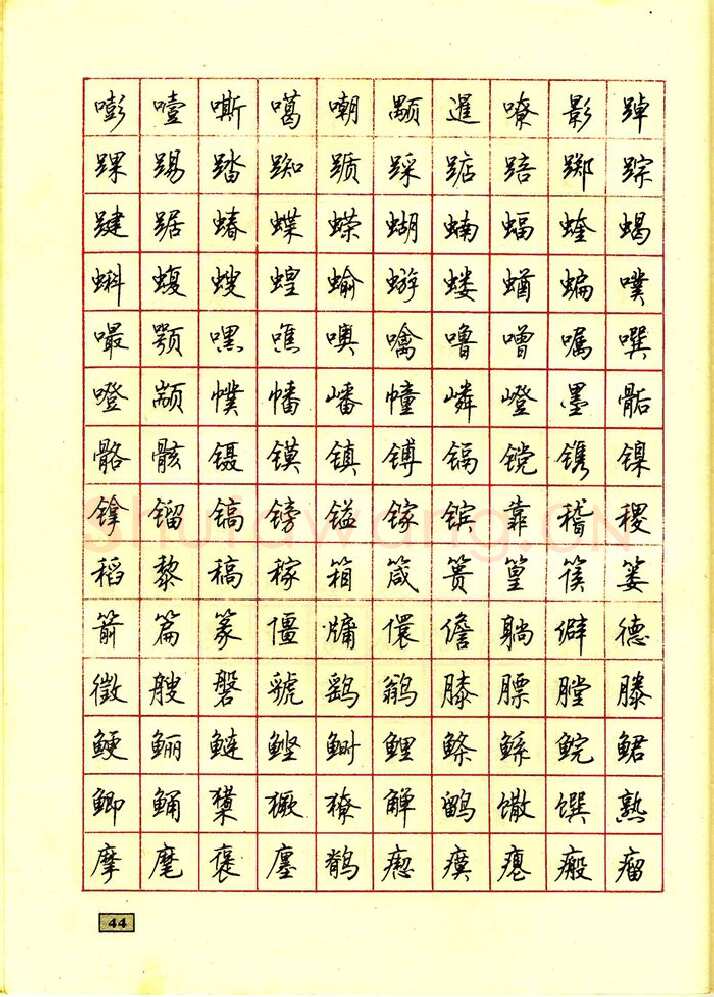 嘭噎嘶噶嘲颙暹嘹影踔
踝踢踏踟踬踩踮踣踯踪
踺踞蝽蝶蝾蝴蝻蝠蝰蝎
蝌蝮螋蝗蝓蝣蝼蝤蝙噗
嘬颚嘿噍噢噙噜噌嘱噀
噔颛幞幡嶓幢嶙嶝墨骺
骼骸镊镆镇镈镉镋镌镍
镎镏镐镑镒镓镔靠稽稷
稻黎稿稼箱箴篑篁篌篓
箭篇篆僵牖儇儋躺僻德
徵艘磐虢鹞鹟膝膘膛滕
鲠鲡鲢鲣鲥鲤鲦鲧鲩鲪
鲫鲬橥獗獠觯鹠馓馔熟
摩麾褒廛鹡瘛瘼瘪瘢瘤
44